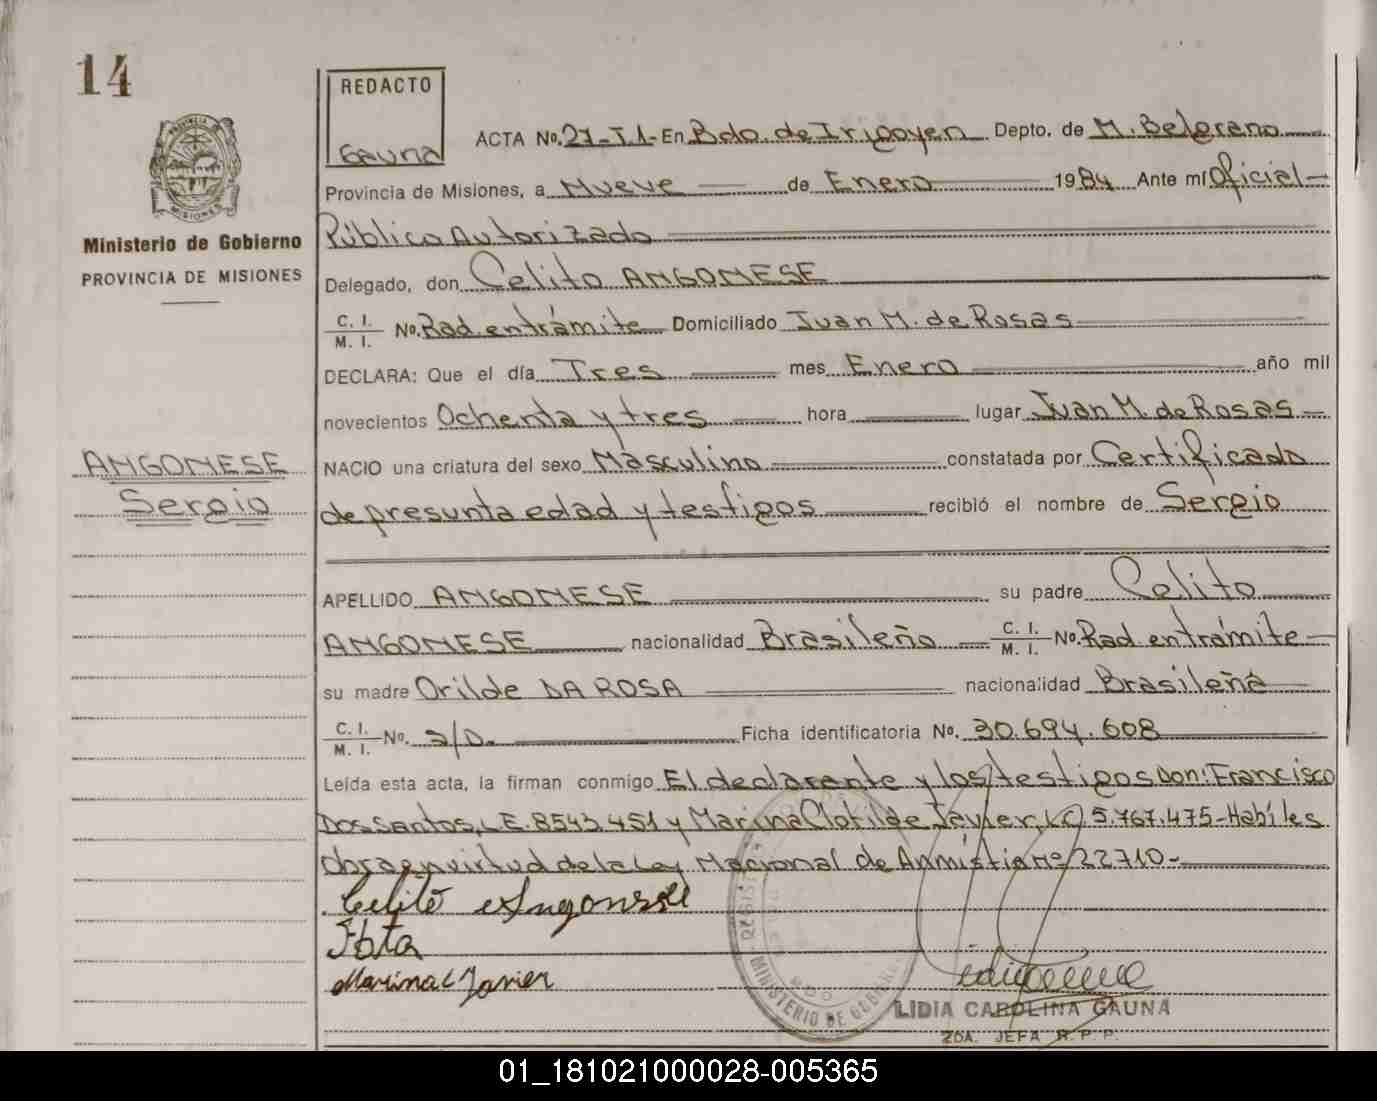 14
REDACTO
Gauna
PROVINCIA DE
MISIONES
Ministerio de Gobierno
PROVINCIA DE MISIONES
ANGONESE
Sergio
ACTA No. 27-T1- En Bdo. de Irigoyen Depto. de M. Belgrano
Provincia de Misiones, a Nueve de Enero 1984 Ante mí Oficial
Público Autorizado
Delegado, don Celito ANGONESE
C. I. M. I. No. Rad. entrámite Domiciliado Juan M. de Rosas
DECLARA: Que el día Tres mes Enero año mil
novecientos Ochenta y tres hora lugar Juan M. de Rosas
NACIO una criatura del sexo Masculino constatada por Certificado
de presunta edad y testigos recibió el nombre de Sergio
APELLIDO ANGONESE su padre Celito
ANGONESE nacionalidad Brasileño C. I. M. I. No. Rad. entrámite
su madre Orilde DA ROSA nacionalidad Brasileña
C. I. M. I. No. S/D. Ficha identificatoria No. 30.694.608
Leída esta acta, la firman conmigo El declarante y los testigos Don: Francisco
Dos Santos, L.E. 8543.451 y Marina Clotilde Javier, L.C 5.767.475- Habíles
obra en virtud de la Ley Nacional de Anmistia Nº 22710-
Celito Angonese
Marina C Javier
MINISTERIO DE GOBIERNO
LIDIA CAROLINA GAUNA
2DA. JEFA R.P.P.
01_181021000028-005365